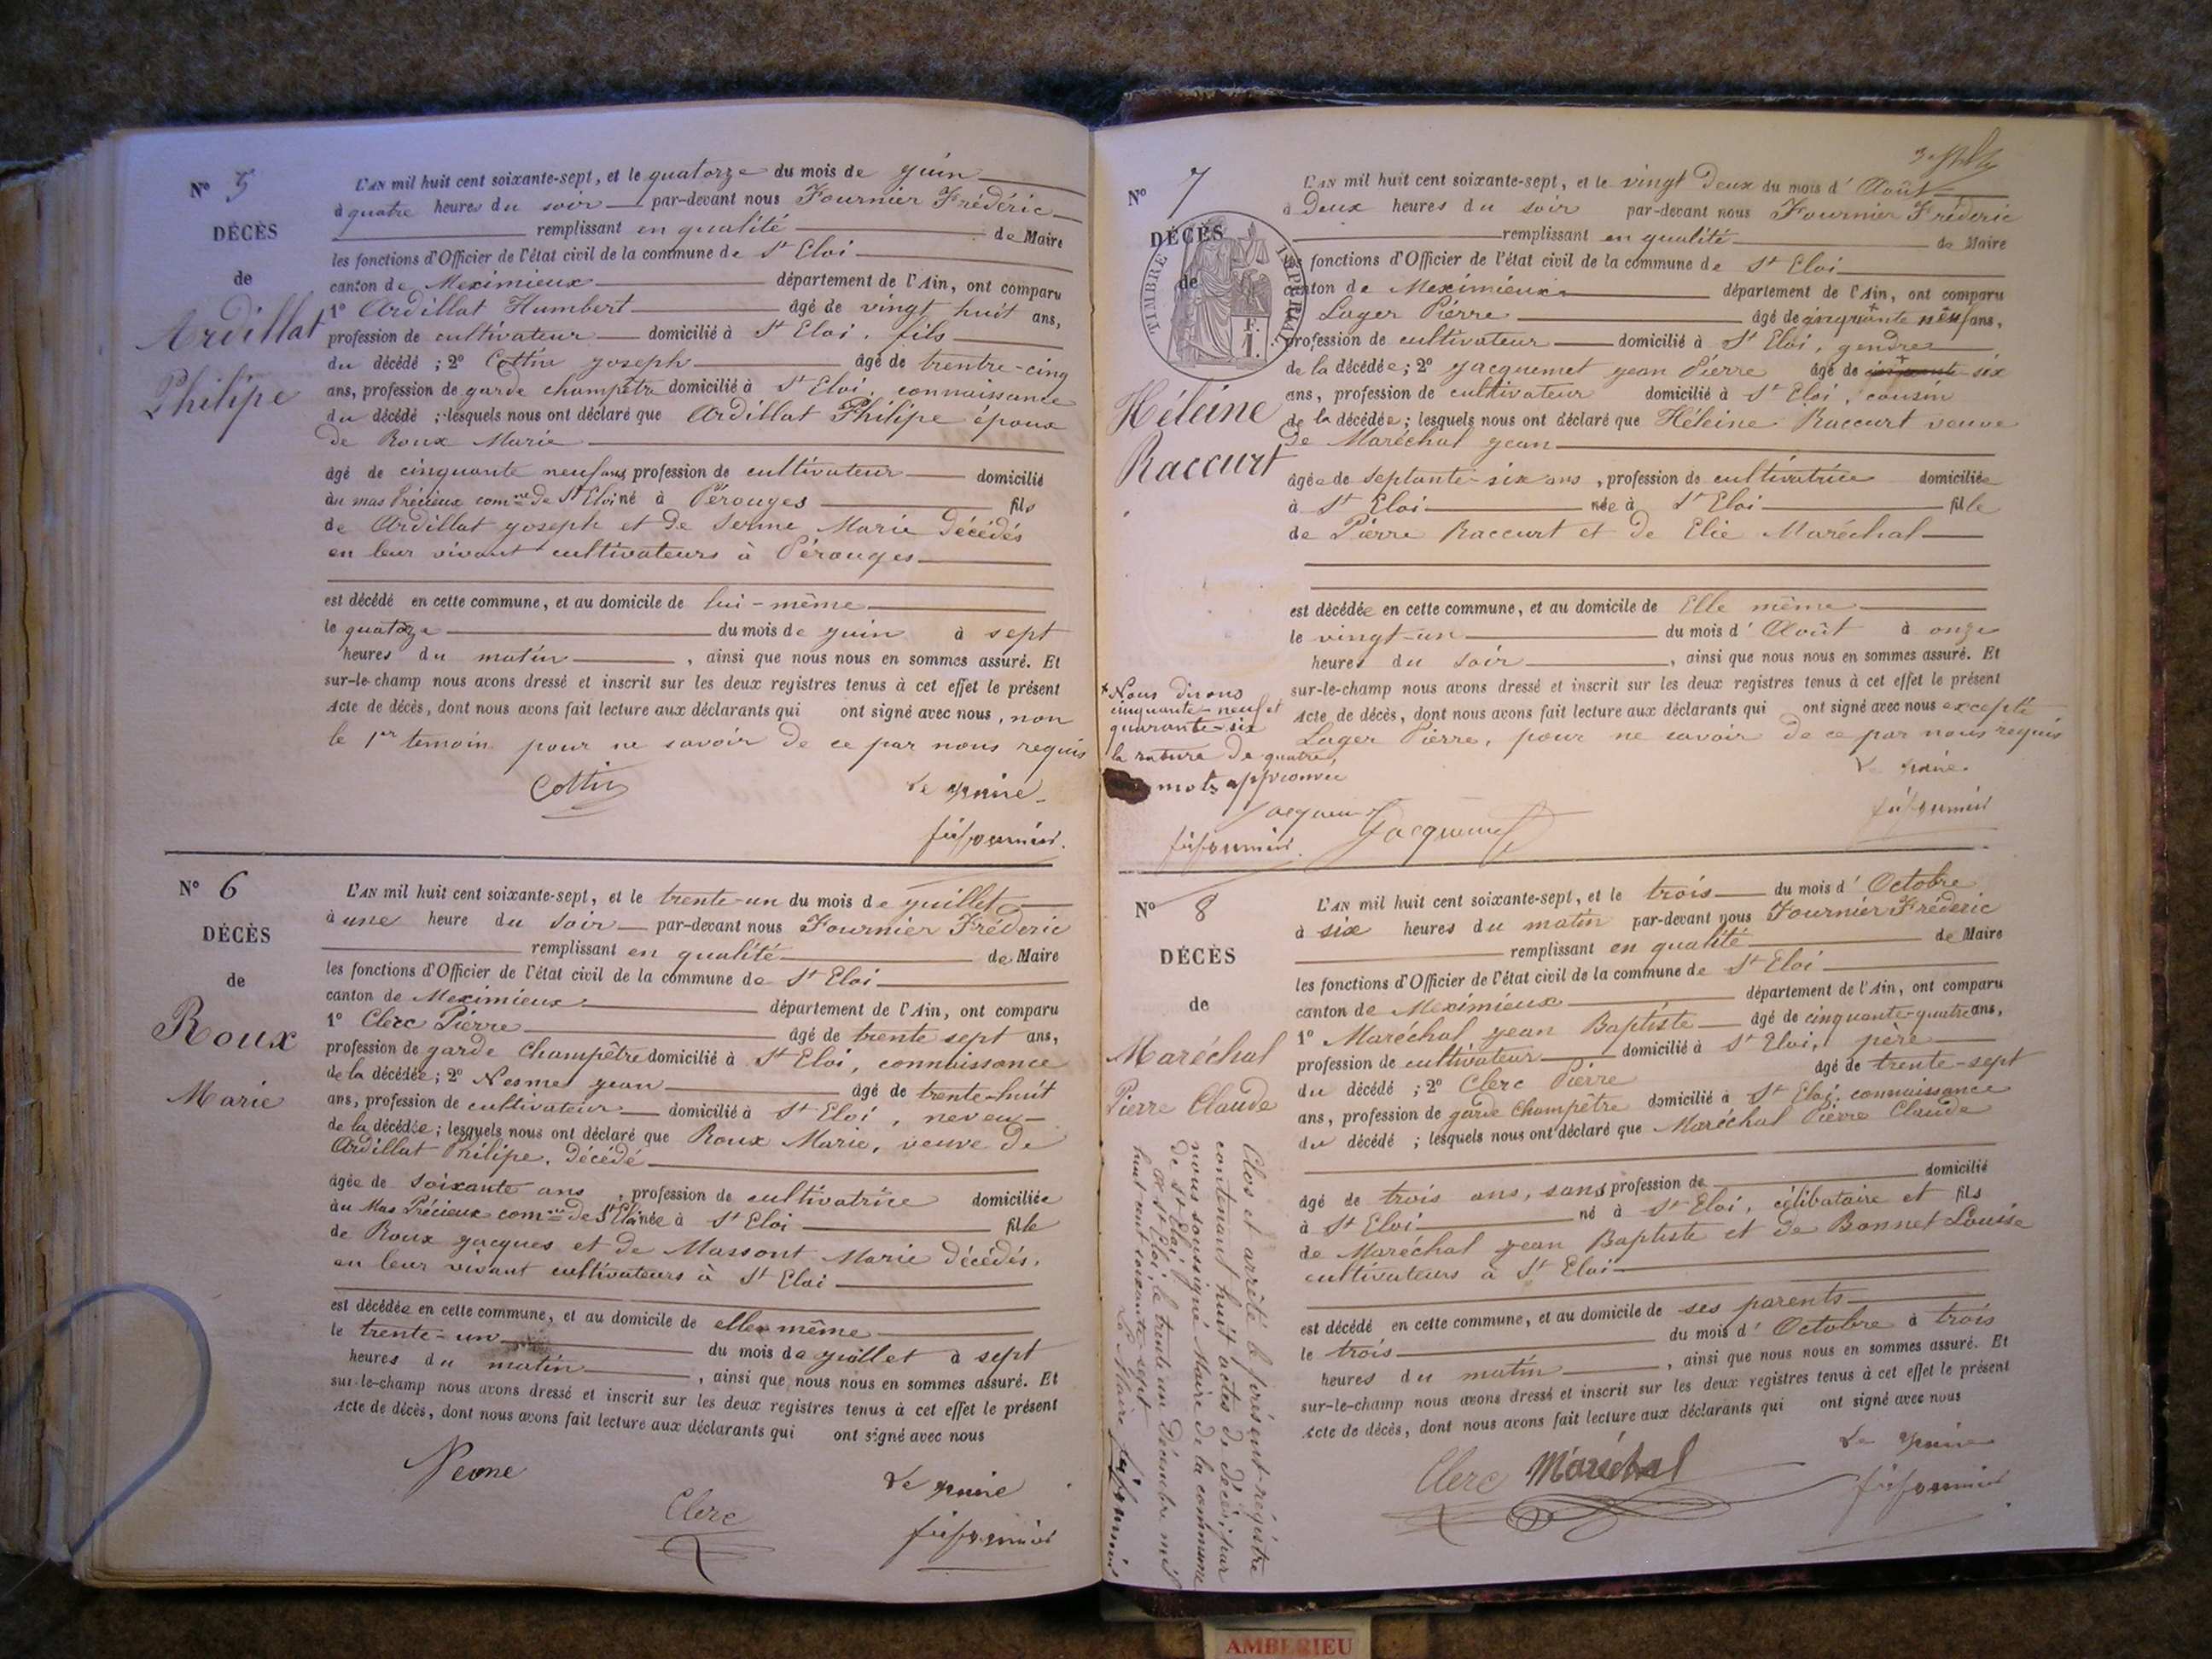 N° 5
DÉCÈS
de
Ardillat
Philipe
L'AN mil huit cent soixante-sept, et le quatorze du mois de juin
à quatre heures du soir par-devant nous Fournier Fréderic
remplissant en qualité de Maire
les fonctions d'Officier de l'état civil de la commune de St Eloi
canton de Meximieux département de l'Ain, ont comparu
1° Ardillat Humbert âgé de vingt huit ans,
profession de cultivateur domicilié à St Eloi, fils
du décédé ; 2° Cottin joseph âgé de trentre-cinq
ans, profession de garde champêtre domicilié à St Eloi, connaissance
du décédé ; lesquels nous ont déclaré que Ardillat Philipe époux
de Roux Marie
âgé de cinquante neuf ans, profession de cultivateur domicilié
au mas Précieux comne de St Eloi né à Pérouges fils
de Ardillat joseph et de Marie décédés
en leur vivant cultivateurs à Pérouges
est décédé en cette commune, et au domicile de lui-même
le quatorze du mois de juin à sept
heures du matin, ainsi que nous nous en sommes assuré. Et
sur-le-champ nous avons dressé et inscrit sur les deux registres tenus à cet effet le présent
Acte de décès, dont nous avons fait lecture aux déclarants qui ont signé avec nous, non
le 1er temoin pour ne savoir de ce par nous requis
Cottin Le maire
N° 6
DÉCÈS
de
Roux
Marie
L'AN mil huit cent soixante-sept, et le trente-un du mois de juillet
à une heure du soir par-devant nous Fournier Fréderic
remplissant en qualité de Maire
les fonctions d'Officier de l'état civil de la commune de St Eloi
canton de Meximieux département de l'Ain, ont comparu
1° Clerc Pierre âgé de trente sept ans,
profession de garde Champêtre domicilié à St Eloi, connaissance
de la décédée ; 2° Nesme jean âgé de trente-huit
ans, profession de cultivateur domicilié à St Eloi, neveu
de la décédée ; lesquels nous ont déclaré que Roux Marie, veuve de
Ardillat Philipe, décédé
âgée de soixante ans, profession de cultivatrice domiciliée
au Mas Précieux comne de St Eloi née à St Eloi fille
de Roux jacques et de Massont Marie décédés,
en leur vivant cultivateurs à St Eloi
est décédée en cette commune, et au domicile de elle même
le trente-un du mois de juillet à sept
heures du matin, ainsi que nous nous en sommes assuré. Et
sur-le-champ nous avons dressé et inscrit sur les deux registres tenus à cet effet le présent
Acte de décès, dont nous avons fait lecture aux déclarants qui ont signé avec nous
Le maire
Clerc
N° 7
DÉCÈS
de
TIMBRE IMPÉRIAL
F.
1.
Héleine
Raccurt
L'AN mil huit cent soixante-sept, et le vingt deux du mois d'Août
à deux heures du soir par-devant nous Fournier Fréderic
remplissant en qualité de Maire
les fonctions d'Officier de l'état civil de la commune de St Eloi
canton de Meximieux département de l'Ain, ont comparu
Lager Pierre âgé de cinquante neuf ans,
profession de cultivateur domicilié à St Eloi, gendre
de la décédée ; 2° jacquemet jean Pierre âgé de cinquante six
ans, profession de cultivateur domicilié à St Eloi, cousin
de la décédée ; lesquels nous ont déclaré que Héleine Raccurt veuve
de Maréchal jean
âgée de septante-six ans, profession de cultivatrice domiciliée
à St Eloi née à St Eloi fille
de Pierre Raccurt et de Elie Maréchal
est décédée en cette commune, et au domicile de Elle même
le vingt-un du mois d'Août à onze
heures du soir, ainsi que nous nous en sommes assuré. Et
sur-le-champ nous avons dressé et inscrit sur les deux registres tenus à cet effet le présent
Acte de décès, dont nous avons fait lecture aux déclarants qui ont signé avec nous excepté
Lager Pierre, pour ne savoir de ce par nous requis
Le maire
Nous disons
cinquante-neuf et
quarante-six
la rature de quatre
mots approuvée
Jacquemet
N° 8
DÉCÈS
de
Maréchal
Pierre Claude
L'AN mil huit cent soixante-sept, et le trois du mois d'Octobre
à six heures du matin par-devant nous Fournier Fréderic
remplissant en qualité de Maire
les fonctions d'Officier de l'état civil de la commune de St Eloi
canton de Meximieux département de l'Ain, ont comparu
1° Maréchal jean Baptiste âgé de cinquante-quatre ans,
profession de cultivateur domicilié à St Eloi, père
du décédé ; 2° Clerc Pierre âgé de trente-sept
ans, profession de garde Champêtre domicilié à St Eloi, connaissance
du décédé ; lesquels nous ont déclaré que Maréchal Pierre Claude
âgé de trois ans, sans profession de domicilié
à St Eloi né à St Eloi, célibataire et fils
de Maréchal jean Baptiste et de Bonnet Louise
cultivateurs à St Eloi
est décédé en cette commune, et au domicile de ses parents
le trois du mois d'Octobre à trois
heures du matin, ainsi que nous nous en sommes assuré. Et
sur-le-champ nous avons dressé et inscrit sur les deux registres tenus à cet effet le présent
Acte de décès, dont nous avons fait lecture aux déclarants qui ont signé avec nous
Clerc Maréchal Le maire
Clos et arrêté le présent registre
contenant huit actes de décès, par
nous soussigné Maire de la commune
de St Eloi,
à St Eloi, le trente un Décembre mil
huit cent soixante sept
Le Maire
AMBERIEU